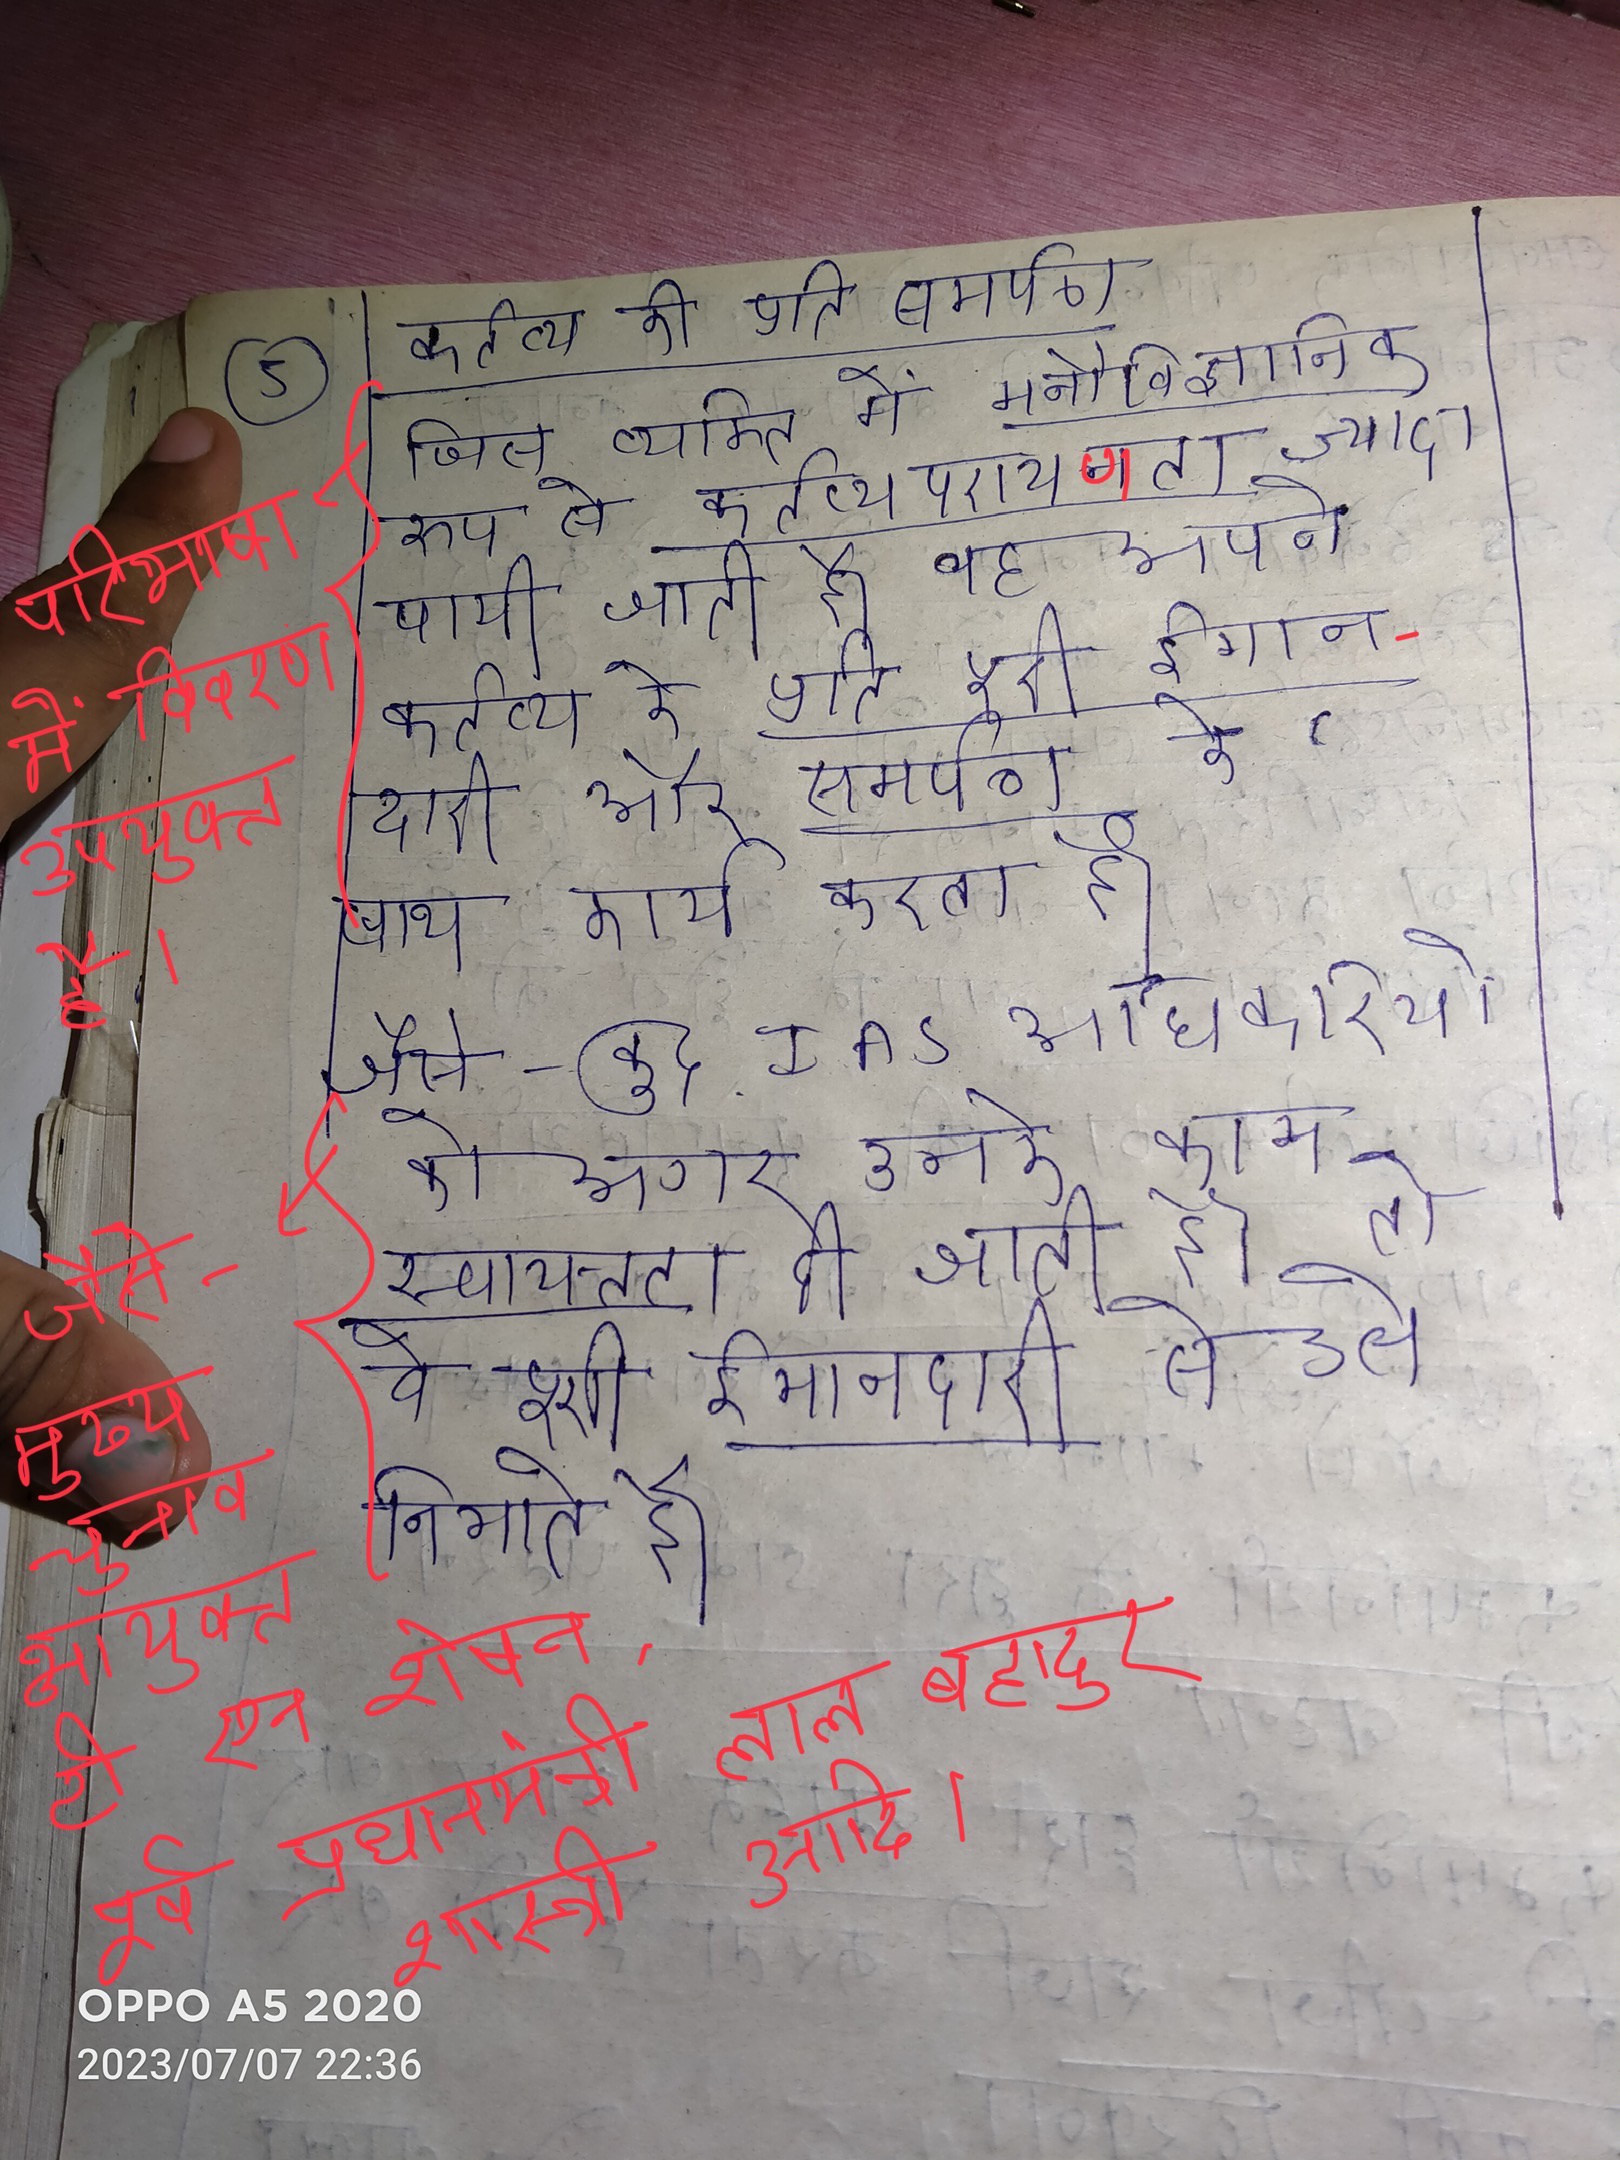 5
कर्तव्य की प्रति समर्पण
जिस व्यक्ति में मनोविज्ञानिक
रूप से कर्तव्यपरायणता ज्यादा
पायी जाती है। वह अपने
कर्तव्य के प्रति पूरी ईमान-
दारी और समर्पण के
साथ कार्य करता है।
जैसे - कुछ IAS अधिकारियो
को अगर उनके काम
स्वायत्तता दी जाती है। तो
वे पूरी ईमानदारी से उसे
निभाते है।
परिभाषा
में विवरण
उपयुक्त
है।
जैसे -
मुख्य
चुनाव
आयुक्त
टी एन शेषन,
पूर्व प्रधानमंत्री लाल बहादुर
शास्त्री आदि।
OPPO A5 2020
2023/07/07 22:36